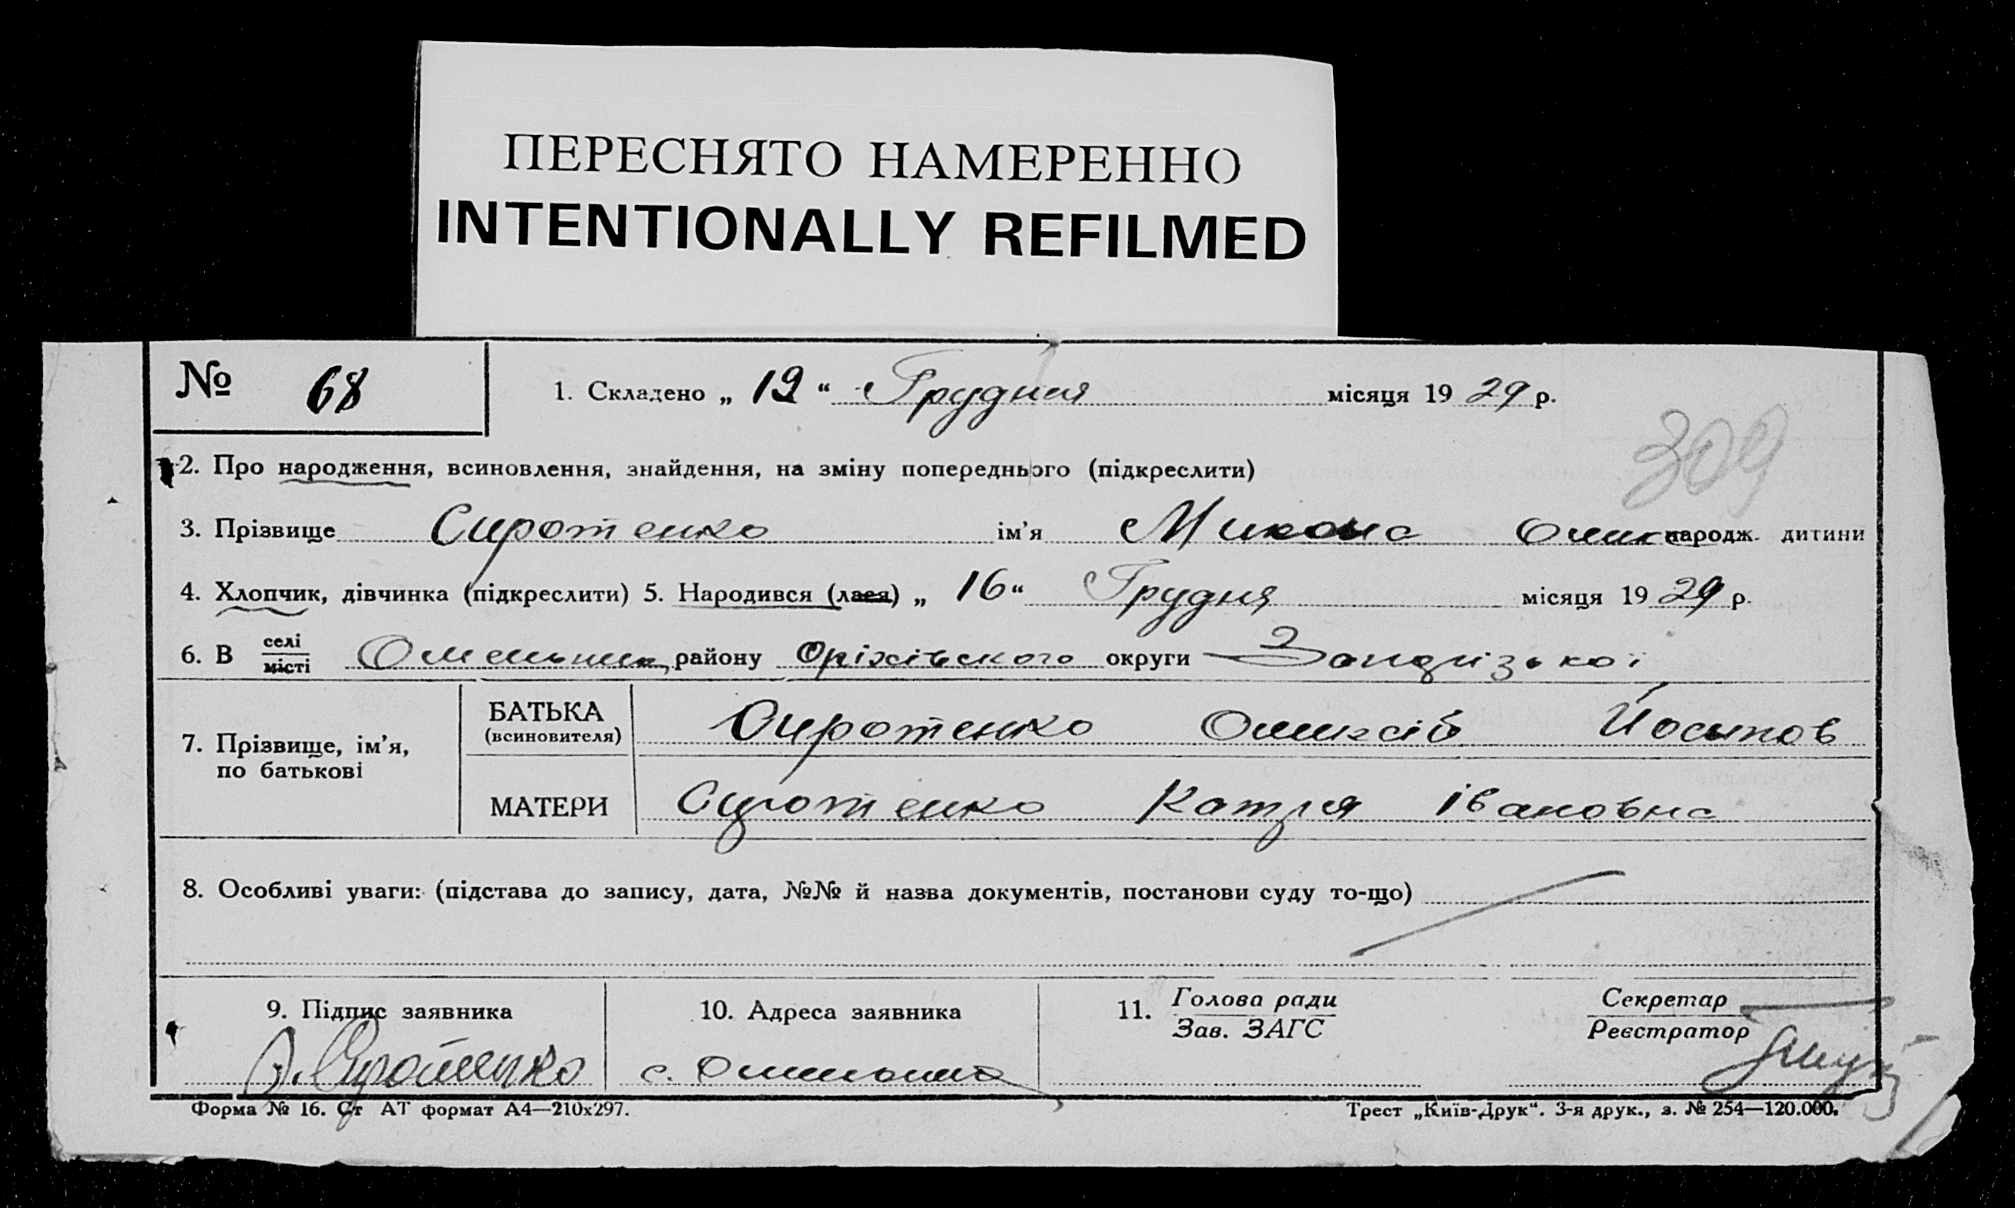 ПЕРЕСНЯТО НАМЕРЕННО
INTENTIONALLY REFILMED
№ 68
1. Складено „ 19 “ Грудня місяця 19 29 р.
309
2. Про народження, всиновлення, знайдення, на зміну попереднього (підкреслити)
3. Прізвище Сиротенко ім’я Микола народж. дитини
4. Хлопчик, дівчинка (підкреслити) 5. Народився (лася) „ 16 “ Грудня місяця 19 29 р.
6. В селі
місті Омельник району Оріхівського округи Запорізької
7. Прізвище, ім’я,
по батькові
БАТЬКА
(всиновителя) Сиротенко Олексій Йосипов
МАТЕРИ Сиротенко Катря Івановна
8. Особливі уваги: (підстава до запису, дата, №№ й назва документів, постанови суду то-що)
9. Підпис заявника
О. Сиротенко
10. Адреса заявника
с. Омельник
11. Голова ради
Зав. ЗАГС
Секретар
Реєстратор
Форма № 16. Ст АТ формат А4—210х297.
Трест „Київ-Друк“. 3-я друк., з. № 254—120.000.